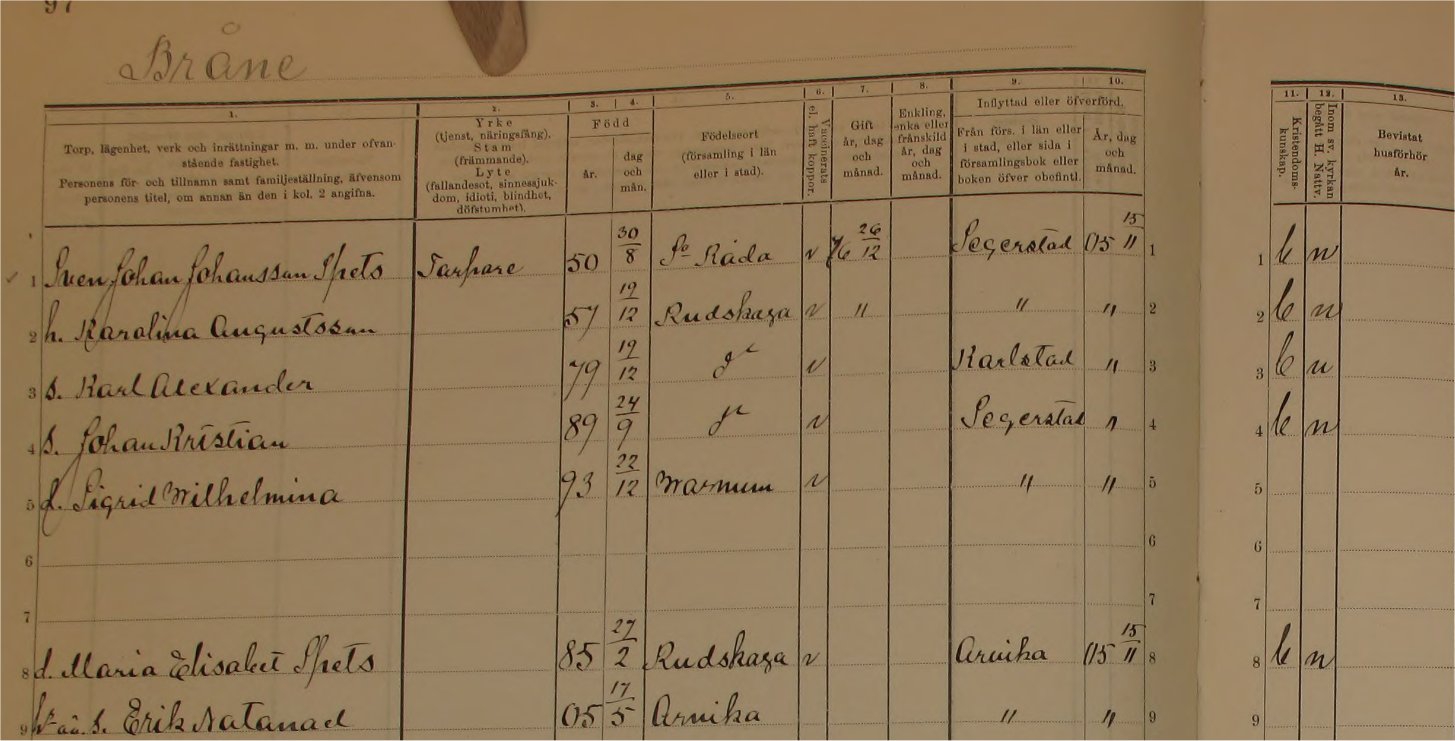 97
Bråne
1. 2. 3. 4. 5. 6. 7. 8. 9. 10. 11. 12. 13.
Torp, lägenhet, verk och inrättningar m. m. under ofvan-
stående fastighet.
Personens för- och tillnamn samt familjeställning, äfvensom
personens titel, om annan än den i kol. 2 angifna.
Yrke
(tjenst, näringsfång).
Stam
(främmande).
Lyte
(fallandesot, sinnessjuk-
dom, idioti, blindhet,
döfstumhet).
Född
år.
dag
och
mån.
Födelseort
(församling i län
eller i stad).
Vaccinerats
el. haft koppor.
Gift
år, dag
och
månad.
Enkling,
enka eller
frånskild
år, dag
och
månad.
Inflyttad eller öfverförd.
Från förs. i län eller
i stad, eller sida i
församlingsbok eller
boken öfver obefintl.
År, dag
och
månad.
Kristendoms-
kunskap.
Inom sv. kyrkan
begått H. Nattv.
Bevistat
husförhör
år.
1 Sven Johan Johansson Spets Torpare 50 30/8 Sö Råda v 76 26/12 Segerstad 05 15/11 1 1 b n
2 h. Karolina Augustsson 57 19/12 Rudskaga v " " " 2 2 b n
3 s. Karl Alexander 79 19/12 v Karlstad " 3 3 b n
4 s. Johan Kristian 89 24/9 v Segerstad " 4 4 b n
5 d. Sigrid Wilhelmina 93 22/12 Warnum v " " 5 5
6 6 6
7 7 7
8 d. Maria Elisabet Spets 85 27/2 Rudskaga v Arvika 05 15/11 8 8 b n
9 s. Erik Natanael 05 17/5 Arvika " " 9 9